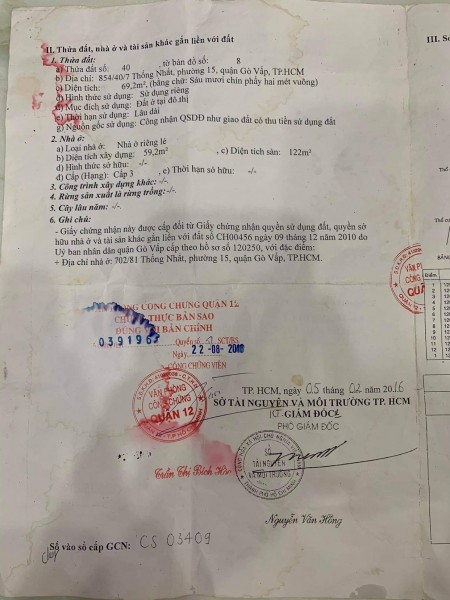 II. Thửa đất, nhà ở và tài sản khác gắn liền với đất
1. Thửa đất:
a) Thửa đất số: 40 , tờ bản đồ số: 8
b) Địa chỉ: 854/40/7 Thống Nhất, phường 15, quận Gò Vấp, TP.HCM
c) Diện tích: 69,2m², (bằng chữ: Sáu mươi chín phẩy hai mét vuông)
d) Hình thức sử dụng: Sử dụng riêng
đ) Mục đích sử dụng: Đất ở tại đô thị
e) Thời hạn sử dụng: Lâu dài
g) Nguồn gốc sử dụng: Công nhận QSDĐ như giao đất có thu tiền sử dụng đất
2. Nhà ở:
a) Loại nhà ở: Nhà ở riêng lẻ
b) Diện tích xây dựng: 59,2m² , c) Diện tích sàn: 122m²
d) Hình thức sở hữu: -/-
đ) Cấp (Hạng): Cấp 3 , e) Thời hạn sở hữu: -/-
3. Công trình xây dựng khác: -/-
4. Rừng sản xuất là rừng trồng: -/-
5. Cây lâu năm: -/-
6. Ghi chú:
- Giấy chứng nhận này được cấp đổi từ Giấy chứng nhận quyền sử dụng đất, quyền sở
hữu nhà ở và tài sản khác gắn liền với đất số CH00456 ngày 09 tháng 12 năm 2010 do
Uỷ ban nhân dân quận Gò Vấp cấp theo hồ sơ số 120250, với đặc điểm:
+ Địa chỉ nhà ở: 702/81 Thống Nhất, phường 15, quận Gò Vấp, TP.HCM.
III. Sơ
BẢNG
Điểm
CÔNG CHỨNG QUẬN 12
CHỨNG THỰC BẢN SAO
ĐÚNG VỚI BẢN CHÍNH
039196
Quyển số SCT/BS
Ngày 22-08-2018
CÔNG CHỨNG VIÊN
VĂN PHÒNG
CÔNG CHỨNG
QUẬN 12
Trần Thị Bích
TP. HCM, ngày 05 tháng 02 năm 2016
SỞ TÀI NGUYÊN VÀ MÔI TRƯỜNG TP. HCM
KT. GIÁM ĐỐC
PHÓ GIÁM ĐỐC
SỞ
TÀI NGUYÊN
VÀ MÔI TRƯỜNG
Nguyễn Văn Hồng
Số vào sổ cấp GCN: CS 03409